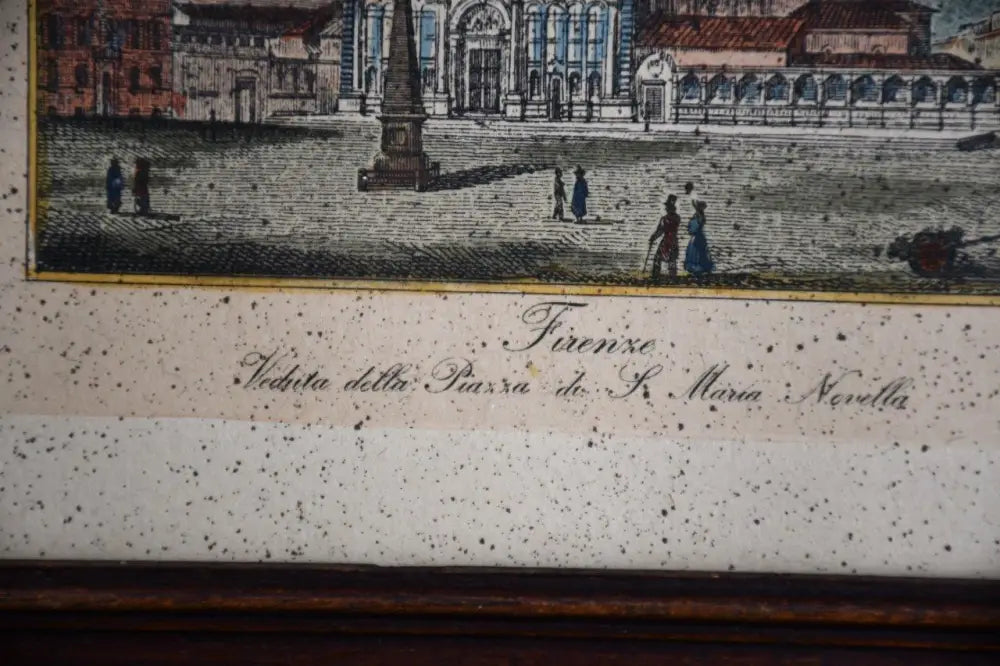 Firenze
Veduta della Piazza di S. Maria Novella